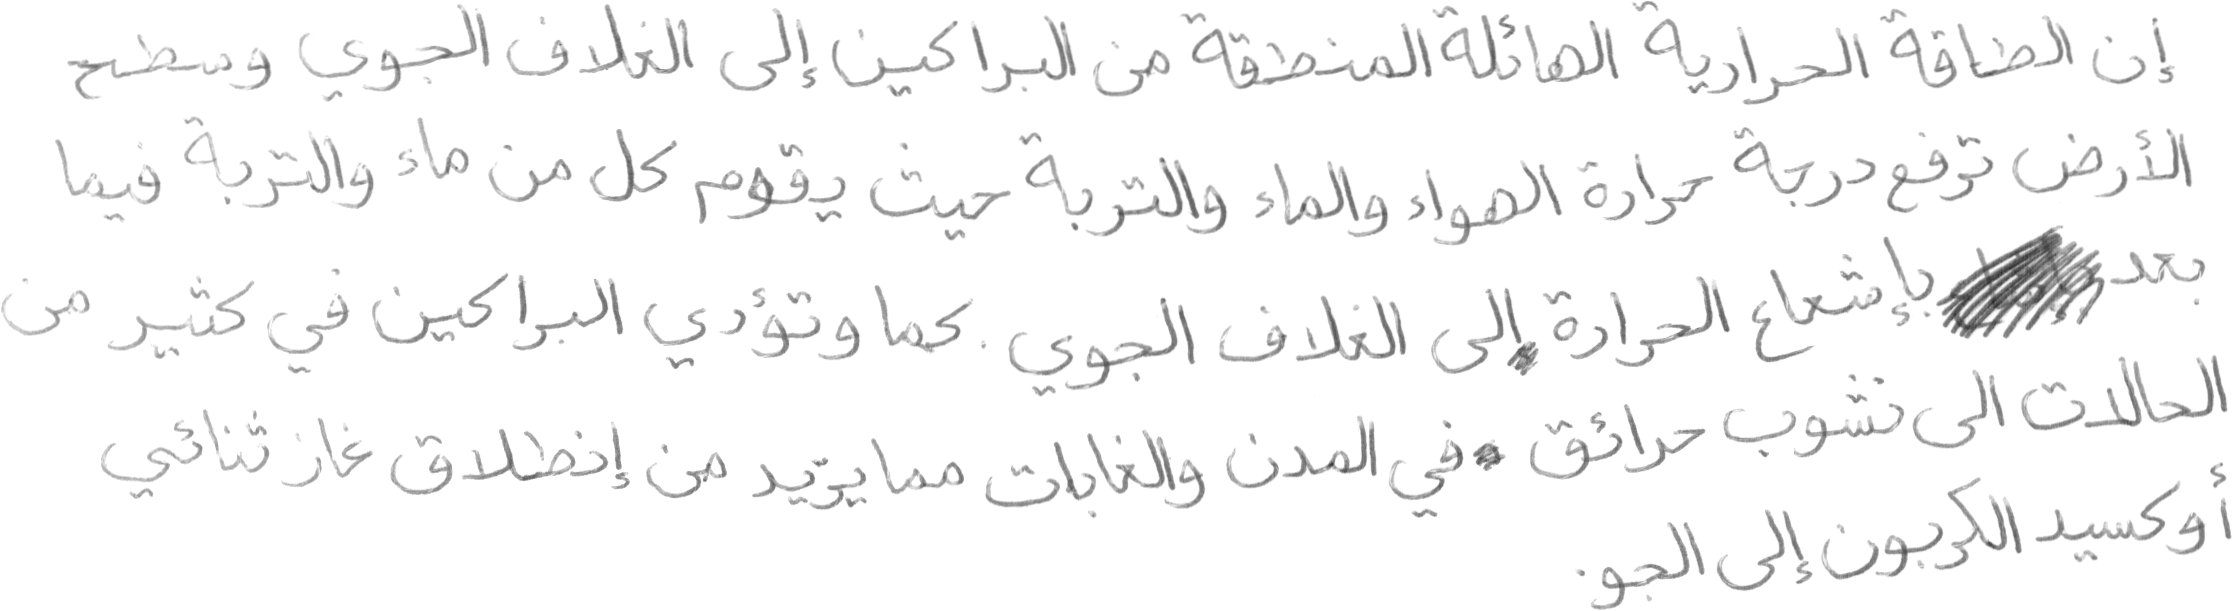 إن الطاقة الحرارية الهائلة المنطقة من البراكين إلى الغلاف الجوي وسطح
الأرض ترفع درجة حرارة الهواء والماء والتربة حيث يقوم كل من ماء والتربة فيما
بعد بإشعاع الحرارة إلى الغلاف الجوي. كما وتؤدي البراكين في كثير من
الحالات الى نشوب حرائق في المدن والغابات مما يزيد من إنطلاق غاز ثنائي
أوكسيد الكربون إلى الجو.